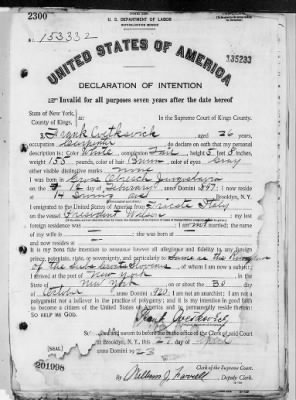 2300
U. S. DEPARTMENT OF LABOR
NATURALIZATION SERVICE
No. 153332
135233
UNITED STATES OF AMERICA
DECLARATION OF INTENTION
Invalid for all purposes seven years after the date hereof
State of New York,
County of Kings,
In the Supreme Court of Kings County.
I, Frank aged 26 years,
occupation do declare on oath that my personal
description is: Color White, complexion height 5 feet 8 inches,
weight 155 pounds, color of hair color of eyes Gray
other visible distinctive marks none
I was born in
on the 16 day of anno Domini 1897; I now reside
at Irving Ave Brooklyn, N.Y.
I emigrated to the United States of America from Trieste Italy
on the vessel President Wilson; my last
foreign residence was I am not married; the name
of my wife is she was born at
and now resides at
It is my bona fide intention to renounce forever all allegiance and fidelity to any foreign
prince, potentate, state, or sovereignty, and particularly to
of the Serbs of whom I am now a subject;
I arrived at the port of New York, in the
State of New York on or about the 30 day
of October, anno Domini 1920; I am not an anarchist; I am not a
polygamist nor a believer in the practice of polygamy; and it is my intention in good faith
to become a citizen of the United States of America and to permanently reside therein:
SO HELP ME GOD.
Frank
Subscribed and sworn to before me in the office of the Clerk of said Court
at Brooklyn, N.Y., this day of
anno Domini 1923
[SEAL]
Clerk of the Supreme Court.
201998
By William J.
Deputy Clerk.